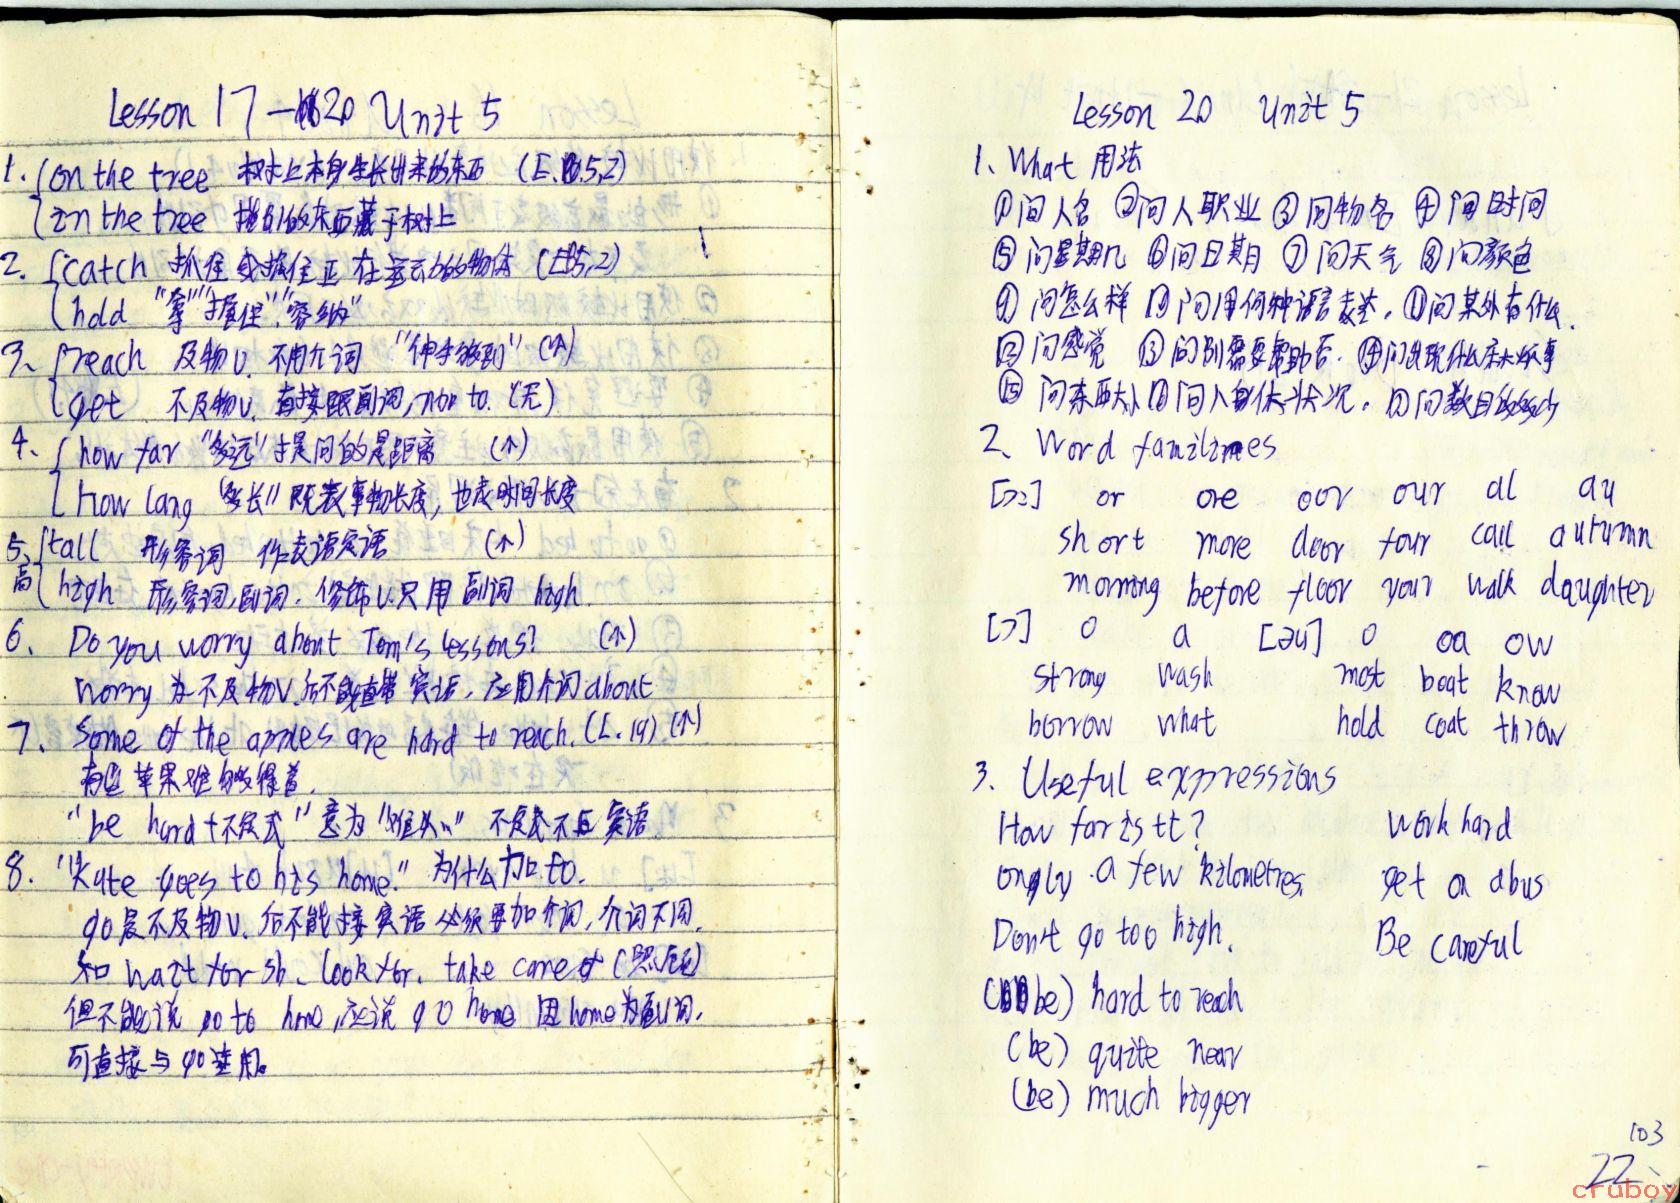 Lesson 17 — 20 Unit 5
1. on the tree 树上本身生长出来的东西 (L. 5,2)
in the tree 指别的东西藏于树上
2. catch 抓住或握住正在运动的物体 (5,2)
hold "拿" "握住" "容纳"
3、reach 及物V. 不用介词 "伸手够到" (↑)
get 不及物V. 直接跟副词, 加 to. (无)
4、how far "多远" 才是问的是距离 (↑)
how lang "多长" 既表事物长度, 也表时间长度
5、tall 形容词 作表语定语 (↑)
高 high 形容词,副词. 修饰V.只用副词 high.
6、Do you worry about Tom's lessons? (↑)
worry 为不及物V.后不能直接宾语, 应用介词 about
7、Some of the apples are hard to reach. (L. 19) (↑)
有些苹果难够得着.
"be hard + 不定式" 意为 "难从…" 不定式不后宾语.
8. "Kate goes to his home." 为什么加 to.
go 是不及物V. 后不能接宾语必须要加介词, 介词不同.
如 wait for sb、look for. take care of (照顾)
但不能说 go to home, 应说 go home 因 home 为副词.
可直接与 go 连用。
Lesson 20 Unit 5
1、What 用法
①问人名 ②问人职业 ③问物名 ④问时间
⑤问星期几 ⑥问日期 ⑦问天气 ⑧问颜色
⑨问怎么样 ⑩问用何种语言表达. ⑪问某处有什么.
⑫问感觉 ⑬问别需要帮助否. ⑭问出现什么事
⑮问东西大小 ⑯问人身体状况. ⑰问数目的多少
2、Word familines
[ɔ:] or ore oor our al au
short more door four call autumn
morning before floor your walk daughter
[ɔ] o a [əu] o oa ow
strong wash most boat know
borrow what hold coat throw
3. Useful expressions
How far is tt? work hard
ongly a few kilometres. get on a bus
Don't go too high. Be careful
(be) hard to reach
(be) quite near
(be) much bigger
103
22
cruboy